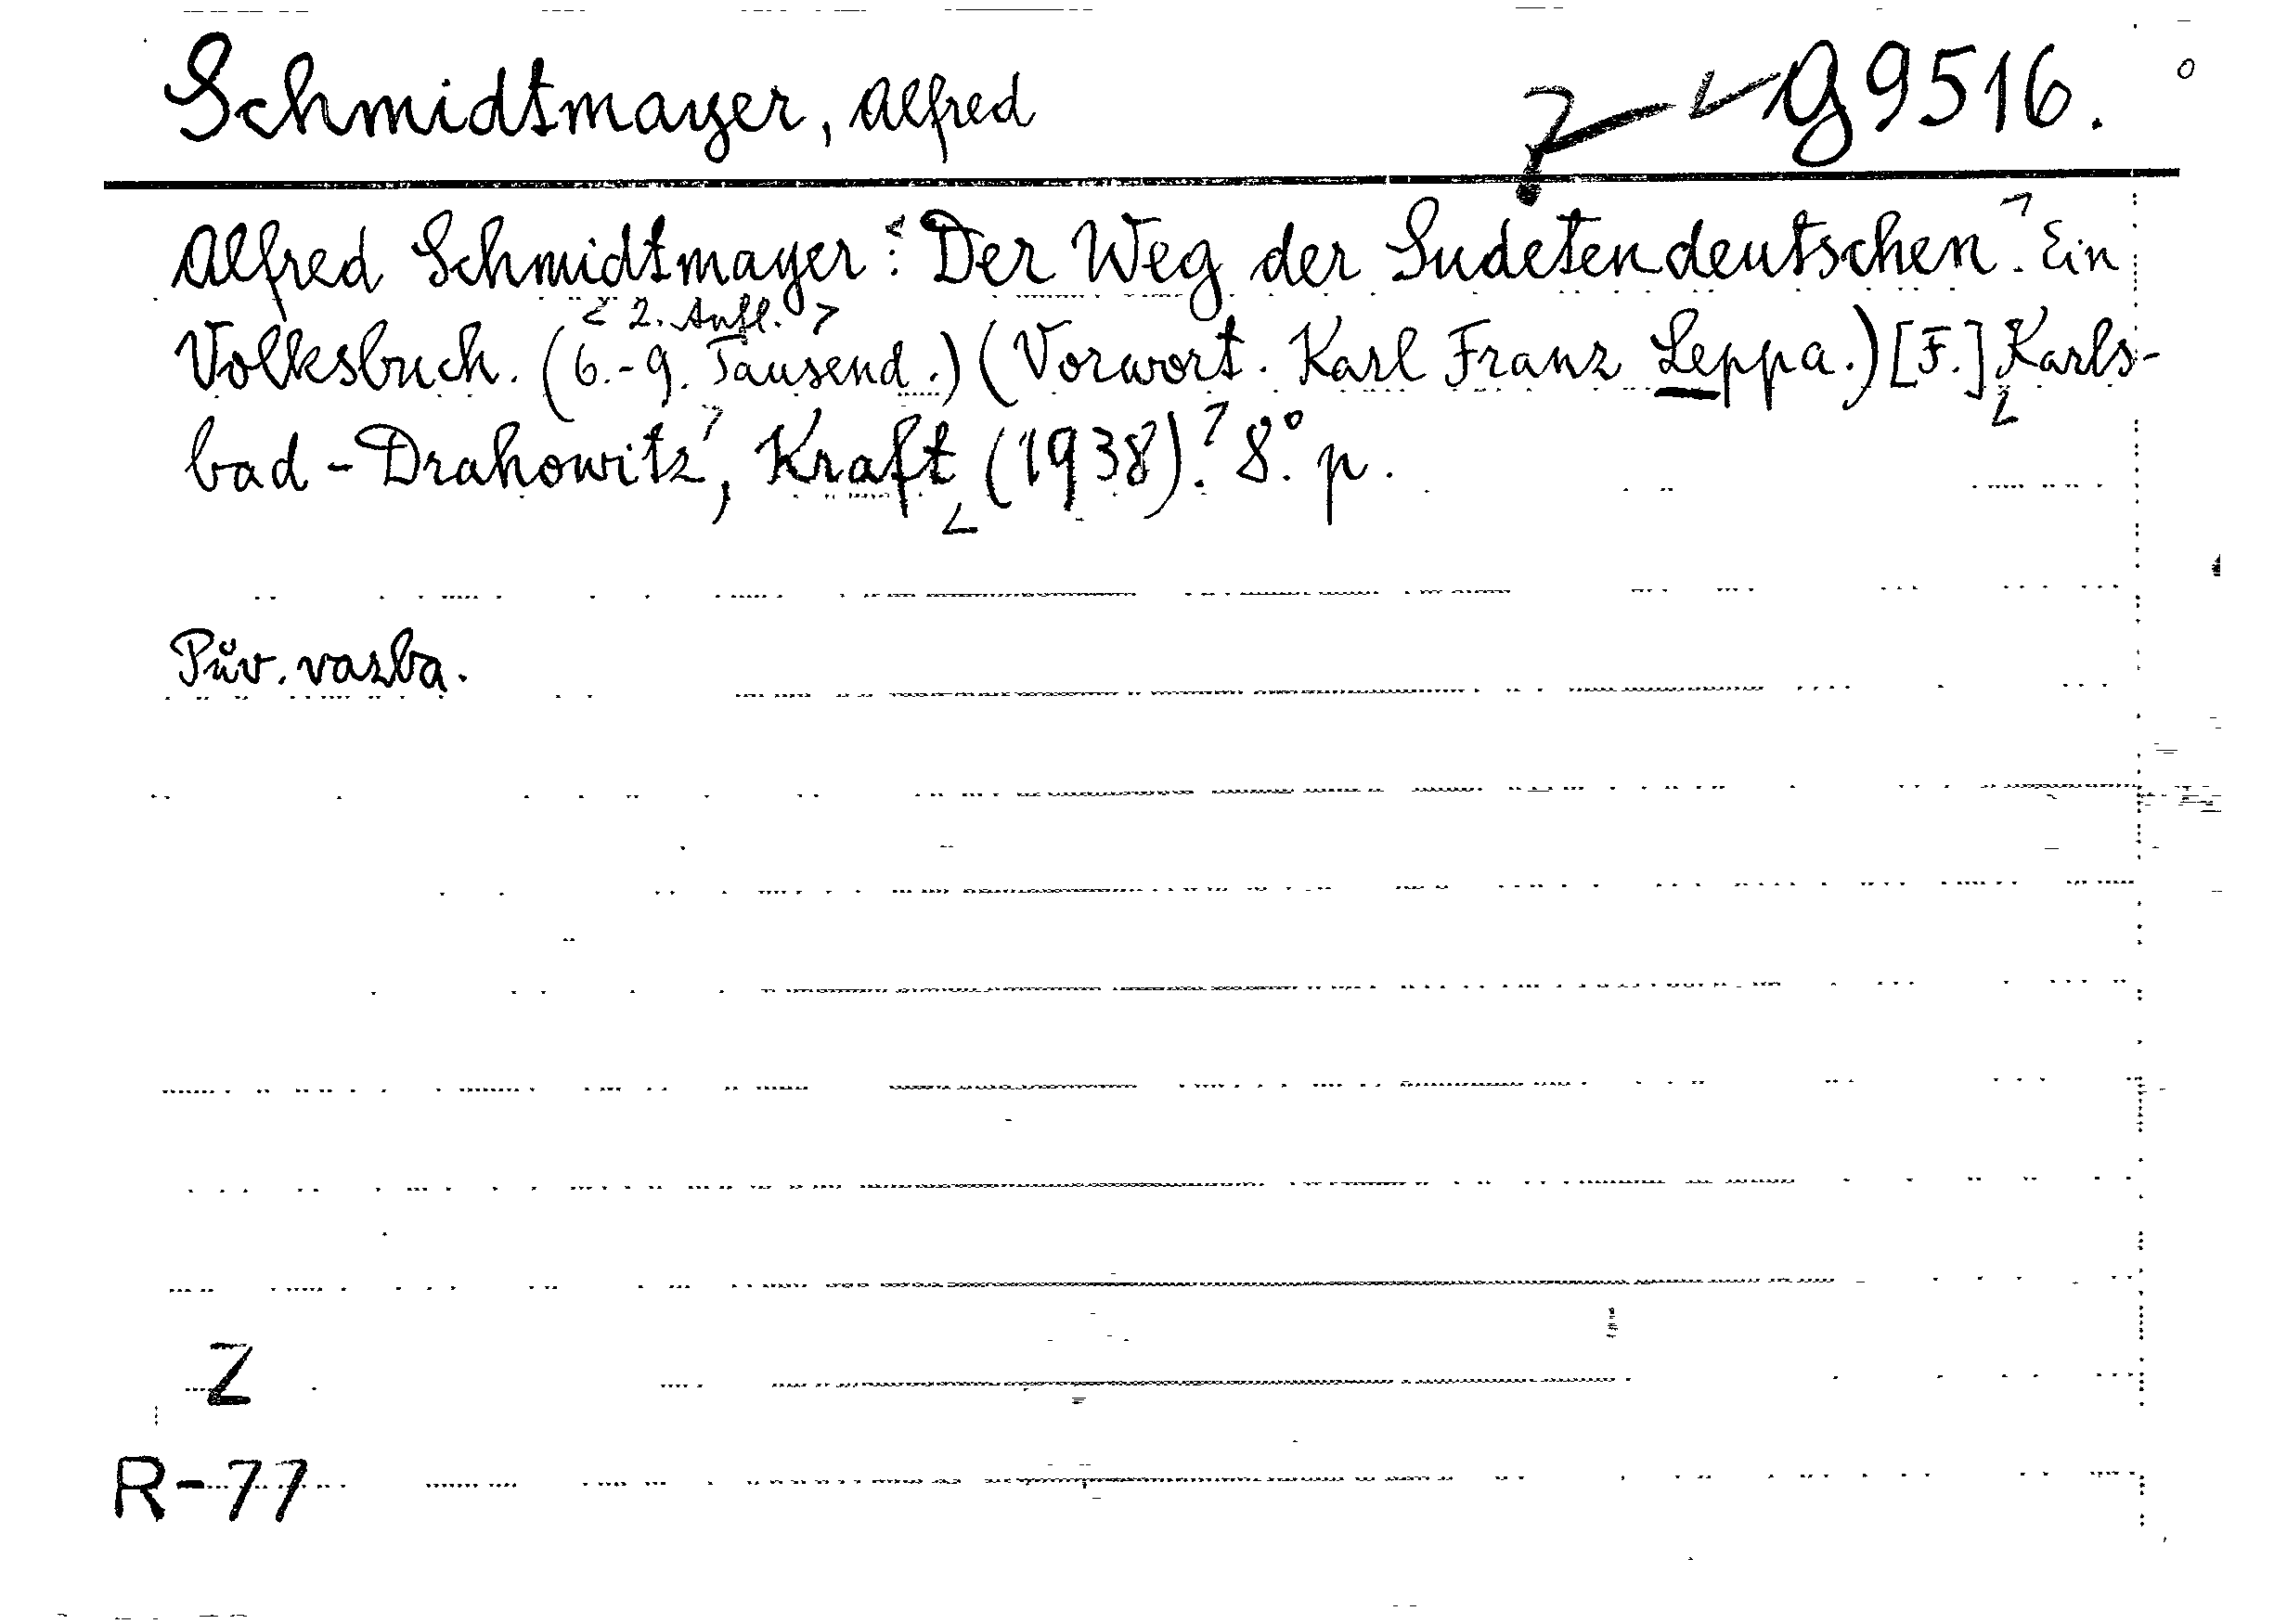 Schmidtmayer, Alfred g 9516.
Alfred Schmidtmayer: Der Weg der Sudetendeutschen. Ein
< 2. Aufl. >
Volksbuch. (6.-9. Tausend.) (Vorwort. Karl Franz Leppa.) [F.] Karls-
bad-Drahowitz, Kraft (1938). 8° p.
Pův. vazba.
Z
R-77